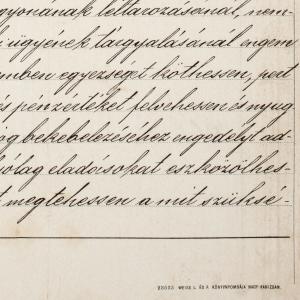 gyonának leltározásánál, nem-
i ügyének tárgyalásánál engem
emben egyezséget köthessen, pert
és pénzértéket felvehessen és nyug
og bekebelezéséhez engedélyt ad-
ólag eladásokat eszközölhes-
t megtehessen a mit szüksé-
23003 WEISZ L. ÉS F. KÖNYVNYOMDÁJA NAGY-KANIZSÁN.